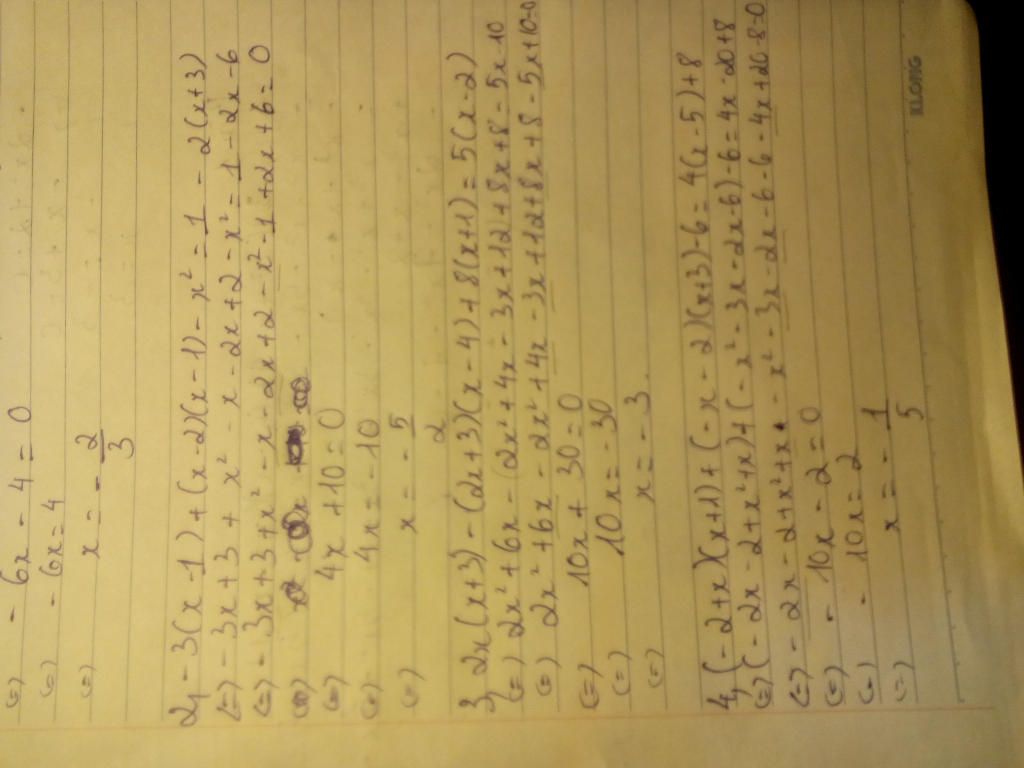 (=) - 6x - 4 = 0
(=) - 6x = 4
(=) x = - 2/3
2, - 3(x-1) + (x-2)(x-1) - x² = 1 - 2(x+3)
(=) - 3x + 3 + x² - x - 2x + 2 - x² = 1 - 2x - 6
(=) - 3x + 3 + x² - x - 2x + 2 - x² - 1 + 2x + 6 = 0
(=) 4x + 10 = 0
(=) 4x = - 10
(=) x = - 5/2
3, 2x(x+3) - (2x+3)(x-4) + 8(x+1) = 5(x-2)
(=) 2x² + 6x - (2x² + 4x - 3x + 12 + 8x + 8 - 5x - 10
(=) 2x² + 6x - 2x² + 4x - 3x + 12 + 8x + 8 - 5x + 10 = 0
(=) 10x + 30 = 0
(=) 10x = - 30
(=) x = - 3
4, (-2+x)(x+1) + (-x-2)(x+3) - 6 = 4(x-5) + 8
(=) (-2x - 2 + x² + x) + (-x² - 3x - 2x 6) - 6 = 4x - 20 + 8
(=) - 2x - 2 + x² + x - x² - 3x - 2x - 6 - 6 - 4x + 20 - 8 = 0
(=) - 10x - 2 = 0
(=) - 10x = 2
(=) x = - 1/5
KLONG